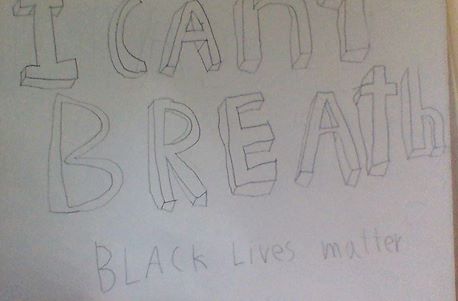 I CAnT
BREAth
BLACK Lives matter